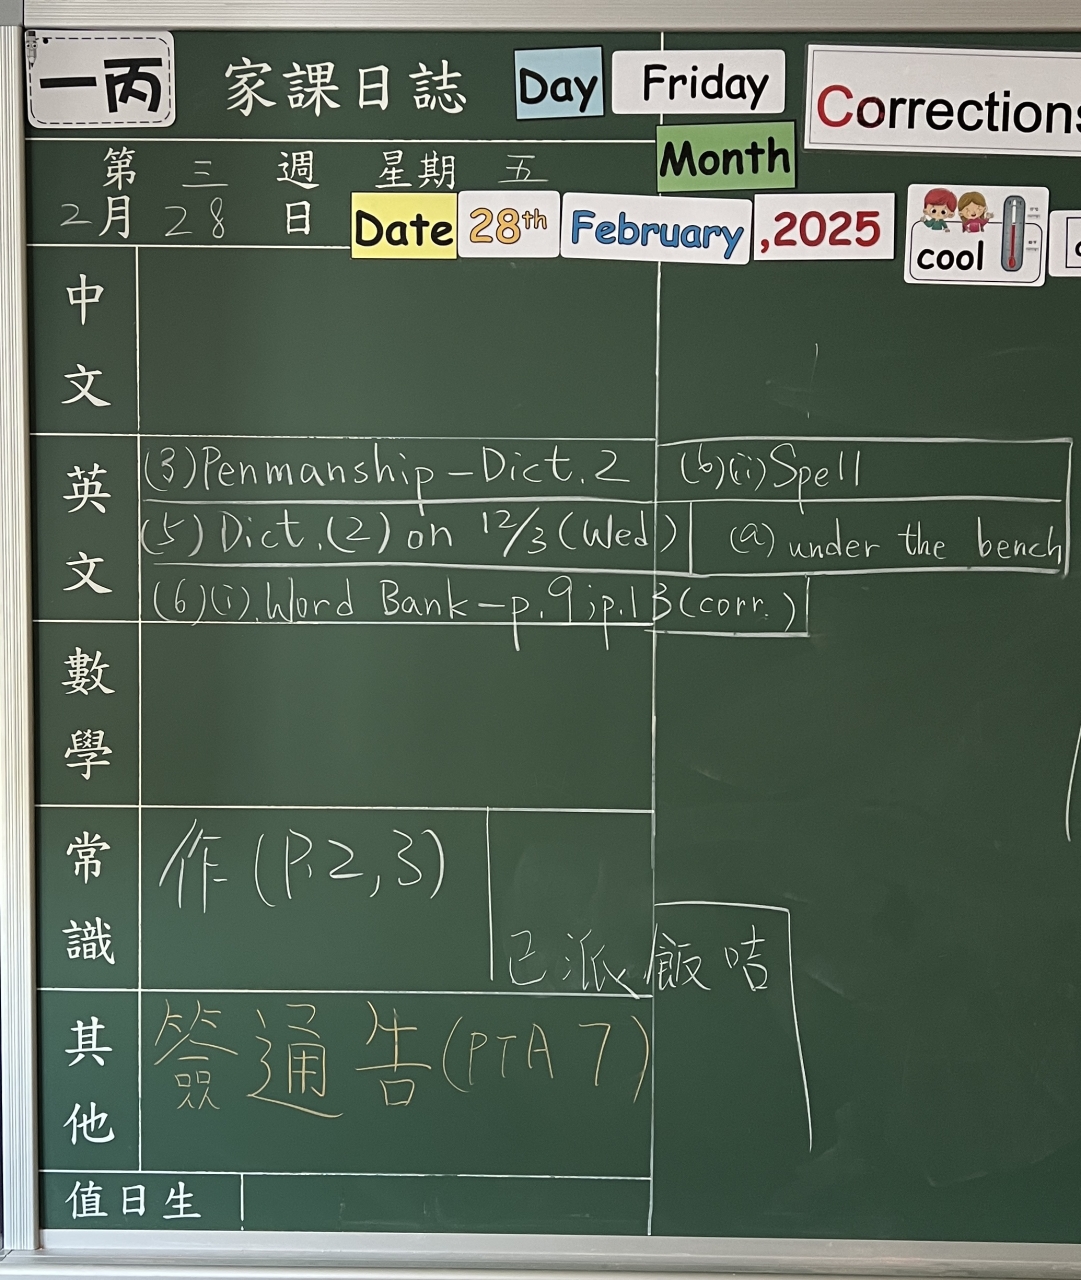 一丙 家課日誌 Day Friday Corrections
Month
第三週 星期五
2月28日 Date 28th February ,2025 cool
中文
英文
(3) Penmanship – Dict. 2 (b)(ii) Spell
(5) Dict. (2) on 12/3 (Wed) (a) under the bench
(6)(i). Word Bank – p.9; p.13 (corr.)
數學
常識
作 (P.2,3)
已派飯咭
其他
簽通告 (PTA 7)
值日生